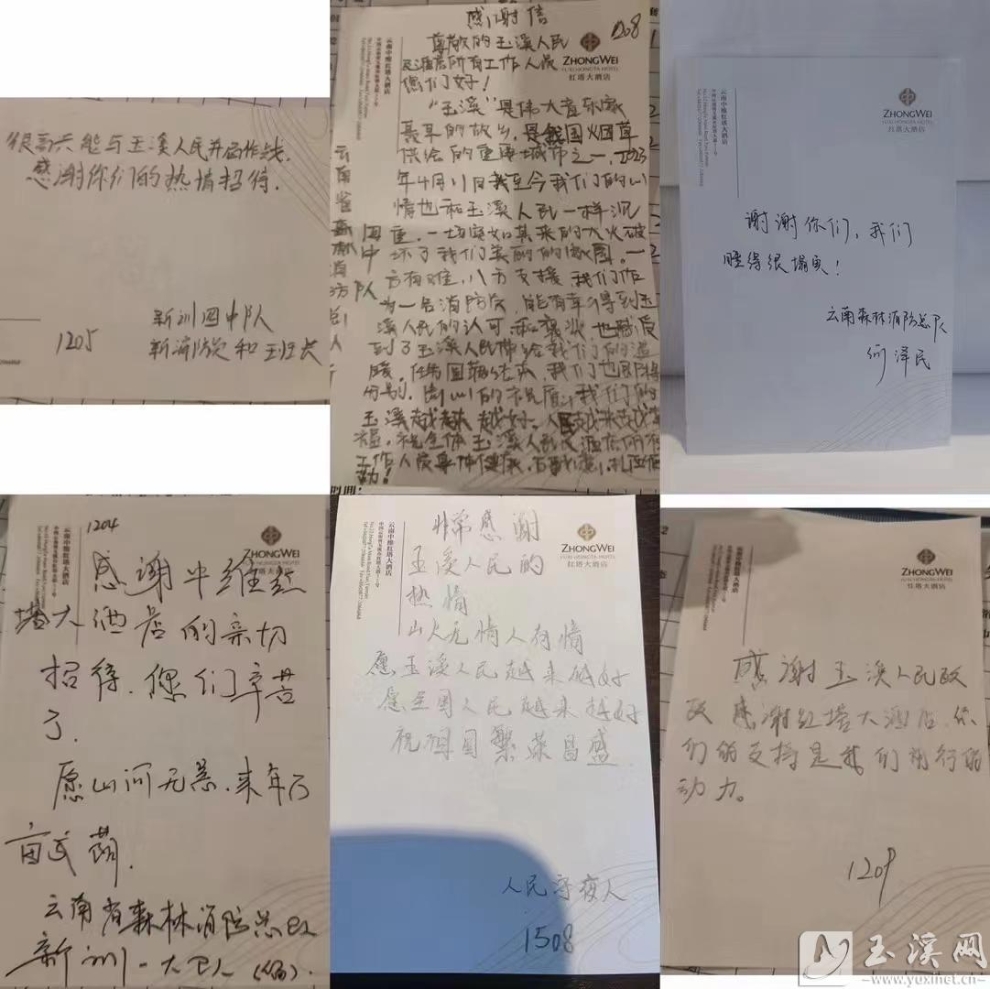 很高兴能与玉溪人民并肩作战.
感谢你们的热情招待.
1205
新训四中队
新消防员和班长
感谢信
1208
尊敬的玉溪人民
及酒店所有工作人员
您们好！
“玉溪”是伟大音乐家
聂耳的故乡，是我国烟草
供给的重要城市之一，2023
年4月11日我至今我们的心
情也和玉溪人民一样沉
重，一场突如其来的大火破
坏了我们美丽的家园。一
方有难，八方支援，我们作
为一名消防员，能有幸得到玉
溪人民的认可和褒奖，也感受
到了玉溪人民带给我们的温
暖。
玉溪越来越好。人民越来越幸
福，祝全体玉溪人民及酒店所有
工作人员身体健康，
云南省森林消防总队
ZHONGWEI
红塔大酒店
云南中维红塔大酒店
ZHONGWEI
HONGTA HOTEL
红塔大酒店
云南中维红塔大酒店
谢谢你们，我们
睡得很塌实！
云南森林消防总队
何泽民
1204
ZHONGWEI
红塔大酒店
云南中维红塔大酒店
感谢中维红
塔大酒店的亲切
招待，您们辛苦
了.
愿山河无恙，来年万
亩武萌.
云南省森林消防总队
新训一大队
ZHONGWEI
红塔大酒店
云南中维红塔大酒店
非常感谢
玉溪人民的
热情
山火无情人有情
愿玉溪人民越来越好
愿全国人民越来越好
祝祖国繁荣昌盛
人民守夜人
1508
ZHONGWEI
红塔大酒店
云南中维红塔大酒店
感谢玉溪人民政
政 感谢红塔大酒店.你
们的支持是我们前行的
动力。
1209
玉溪网
www.yuxinet.cn